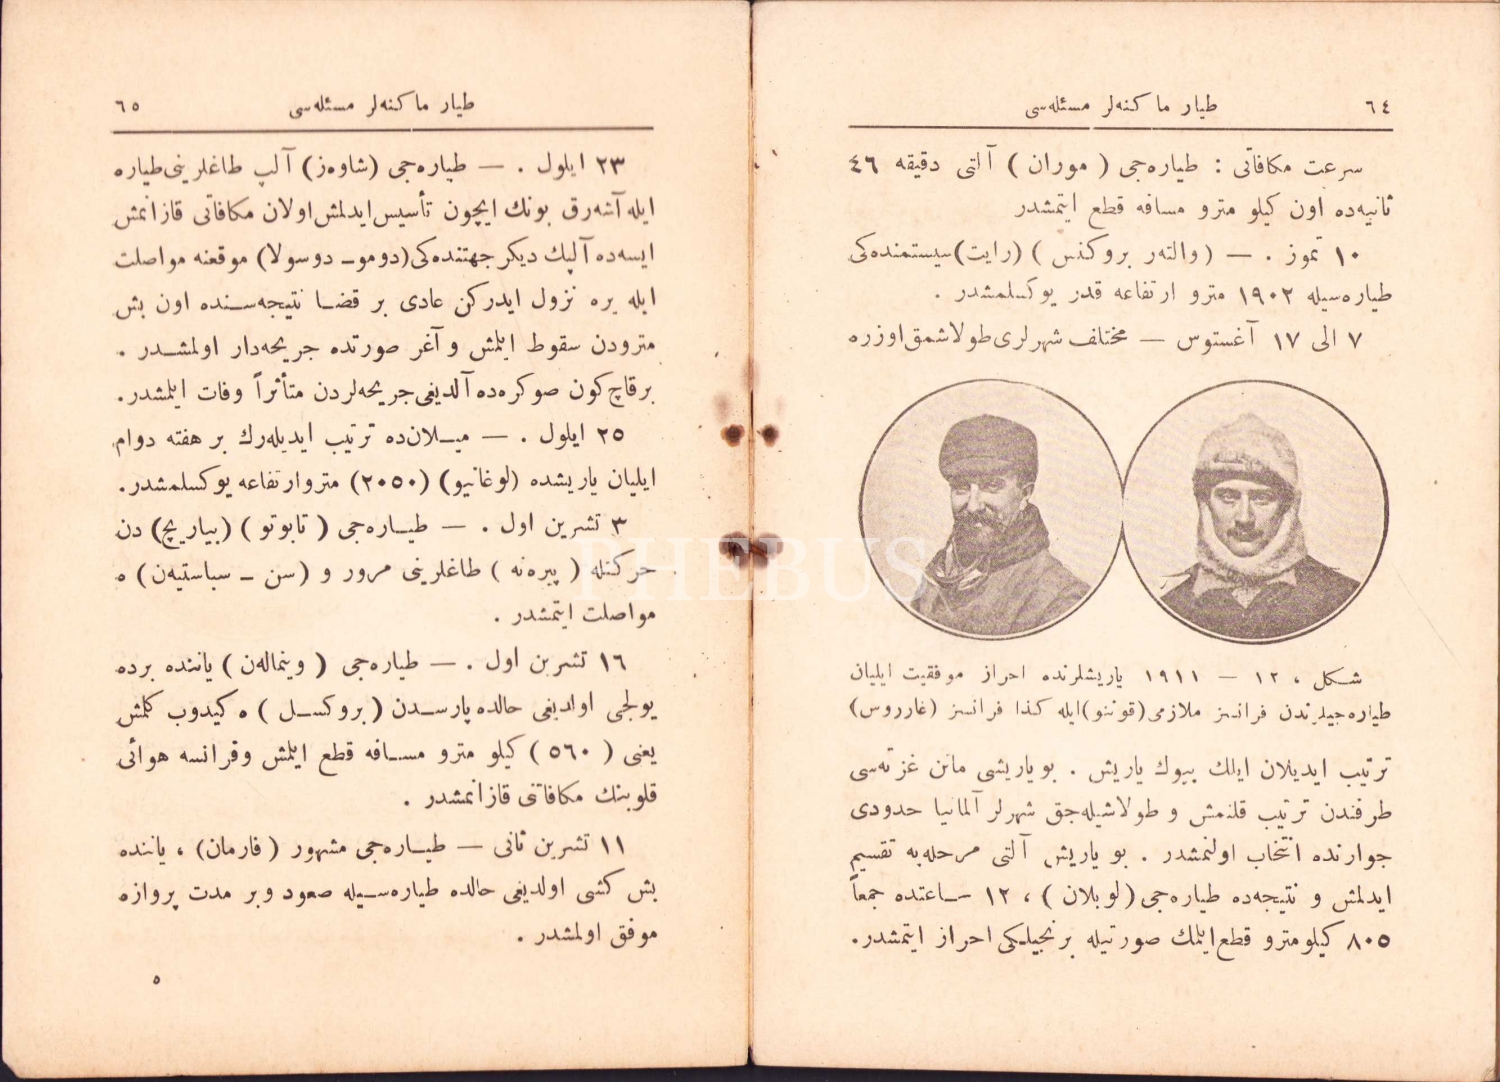 ٦٤
طیار ماکنه‌لر مسئله‌سی
سرعت مکافاتی : طیاره‌جی ( موران ) آلتی دقیقه ٤٦
ثانیه‌ده اون کیلو مترو مسافه قطع ایتمشدر
١٠ تموز . — (والتەر بروکنس ) (رایت) سیستمنده‌کی
طیاره‌سیله ١٩٠٢ مترو ارتفاعه قدر یوکسلمشدر .
٧ الی ١٧ آغستوس — مختلف شهرلری طولاشمق اوزره
شکل ، ١٢ — ١٩١١ یاریشلرنده احراز موفقیت ایلیان
طیاره‌جیلرندن فرانسز ملازمی (قوننو) ایله کذا فرانسز (غارروس)
ترتیب ایدیلان ایلك بیوك یاریش . بو یاریشی ماتن غزته‌سی
طرفندن ترتیب قلنمش و طولاشیله‌جق شهرلر آلمانیا حدودی
جوارنده انتخاب اولنمشدر . بو یاریش آلتی مرحله‌یه تقسیم
ایدلمش و نتیجه‌ده طیاره‌جی (لوبلان ) ، ١٢ ساعتده جمعاً
٨٠٥ کیلومترو قطع ایلمك صورتیله برنجیلکی احراز ایتمشدر.
طیار ماکنه‌لر مسئله‌سی
٦٥
٢٣ ایلول . — طیاره‌جی (شاوەز) آلپ طاغلرینی طیاره
ایله آشه‌رق بونك ایچون تأسیس ایدلمش اولان مکافاتی قازانمش
ایسه‌ده آلپك دیکر جهتنده‌کی (دومو ـ دوسولا) موقعنه مواصلت
ایله یره نزول ایدرکن عادی بر قضا نتیجه‌سنده اون بش
مترودن سقوط ایلمش و آغر صورتده جریحه‌دار اولمشدر .
برقاچ کون صوکره‌ده آلدیغی جریحه‌لردن متأثراً وفات ایلمشدر.
٢٥ ایلول . — میلان‌ده ترتیب ایدیله‌رك بر هفته دوام
ایلیان یاریشده (لوغانیو) (٢٠٥٠) مترو ارتفاعه یوکسلمشدر.
٣ تشرین اول . — طیاره‌جی ( تابوتو ) (بیاریچ) دن
حرکتله ( پیره‌نه ) طاغلرینی مرور و (سن ـ سباستیەن) ه
مواصلت ایتمشدر .
١٦ تشرین اول . — طیاره‌جی ( وینمالەن ) یاننده برده
یولجی اولدیغی حالده پارسدن (بروکسل ) ه کیدوب کلمش
یعنی ( ٥٦٠ ) کیلو مترو مسافه قطع ایلمش وفرانسه هوائی
قلوبنك مکافاتنی قازانمشدر .
١١ تشرین ثانی — طیاره‌جی مشهور ( فارمان) ، یاننده
بش کشی اولدیغی حالده طیاره‌سیله صعود وبر مدت پروازه
موفق اولمشدر .
٥
PHEBUS